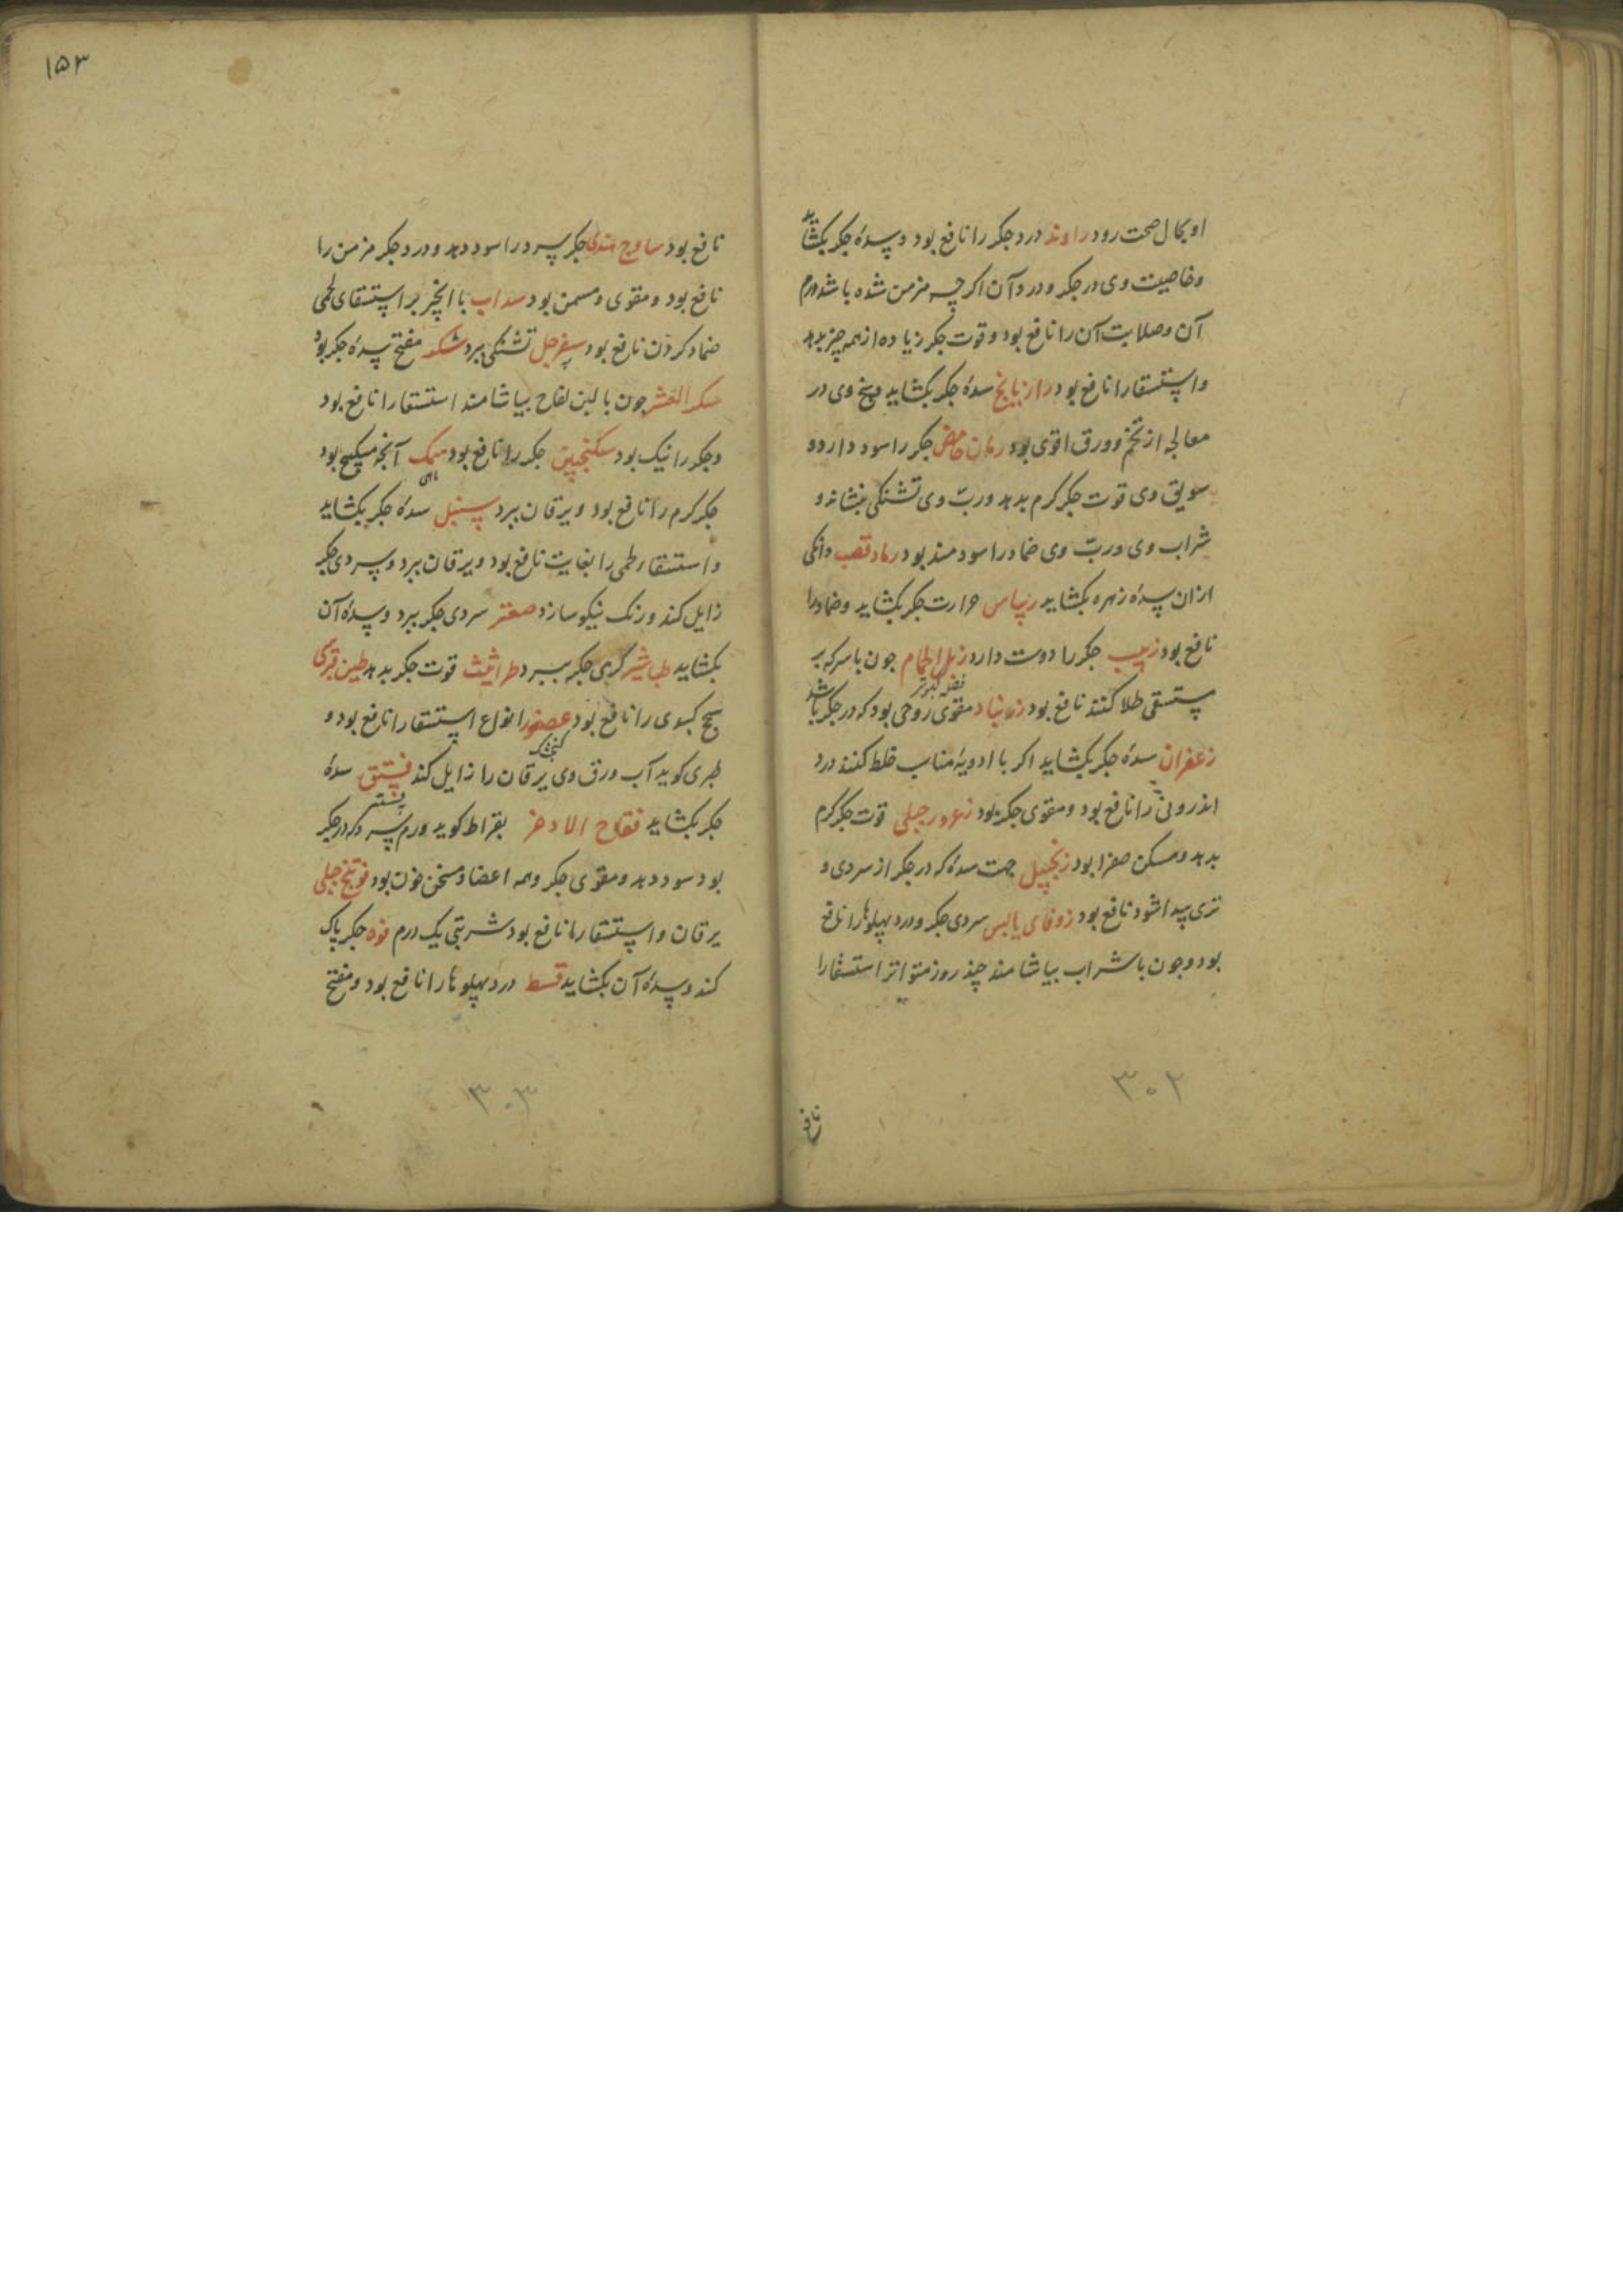 او بحال صحت رود راوند درد جکر را نافع بود و سدهٔ جکر بکشاید
و خاصیت وی در جکر و درد آن اکرچه مزمن شده باشد ورم
آن و صلابت آن را نافع بود و قوت جکر زیاده از همه چیز بدهد
و استسقا را نافع بود رازیانج سدهٔ جکر بکشاید و بیخ وی در
معالجه از تخم و ورق اقوی بود رمان حامض جکر را سود دارد و
سویق وی قوت جکر کرم بدهد و ربّ وی تشنکی بنشاند و
شراب وی و ربّ وی خمار را سودمند بود رماد قصب دانکی
ازان سدهٔ زهره بکشاید ریباس حرارت جکر بکشاید و خمار را
نافع بود زبیب جکر را دوست دارد زبل الحمام جون با سرکه بر
فضله کبوتر
مستسقی طلا کنند نافع بود زرنباد مقوی روحی بود که در جکر باشد
زعفران سدهٔ جکر بکشاید اکر با ادویهٔ مناسب خلط کنند درد
اندرونی را نافع بود و مقوی جکر بود زعرور جبلی قوت جکر کرم
بدهد و مسکن صفرا بود زنجبیل جهت سدهٔ که در جکر از سردی و
تری پیدا شود نافع بود زوفای یابس سردی جکر و درد پهلوها را نافع
بود و جون با شراب بیاشامند چند روز متواتر استسقا را
۳۰۲
نافع
۱۵۳
نافع بود ساذج هندی جکر سرد را سود دهد و درد جکر مزمن را
نافع بود و مقوی و مسمن بود سداب با انجیر بر استسقای لحمی
ضماد کردن نافع بود سفرجل تشنکی ببرد شکر مفتح سدهٔ جکر بود
سکر العشر جون با لبن لقاح بیاشامند استسقا را نافع بود
و جکر را نیک بود سکنجبین جکر را نافع بود سمک آنجه بود
ماهی
جکر کرم را نافع بود و یرقان ببرد سنبل سدهٔ جکر بکشاید
و استسقاء لحمی را بغایت نافع بود و یرقان ببرد و سردی جکر
زایل کند و رنک نیکو سازد صعتر سردی جکر ببرد و سدهٔ آن
بکشاید طباشیر کرمی جکر ببرد طراثیث قوت جکر بدهد طین قبرسی
سحج کبدی را نافع بود عصفور انواع استسقا را نافع بود و
کنجشک
طبری کوید آب ورق وی یرقان را زایل کند فستق سدهٔ
پسته
جکر بکشاید فقاح الاذخر بقراط کوید ورم سرد که در جکر
بود سود دهد و مقوی جکر و همه اعضا و مسخن خون بود فوتنج جبلی
یرقان و استسقا را نافع بود شربتی یک درم فوه جکر پاک
کند و سدهٔ آن بکشاید قسط درد پهلوها را نافع بود و مفتح
۳۰۳